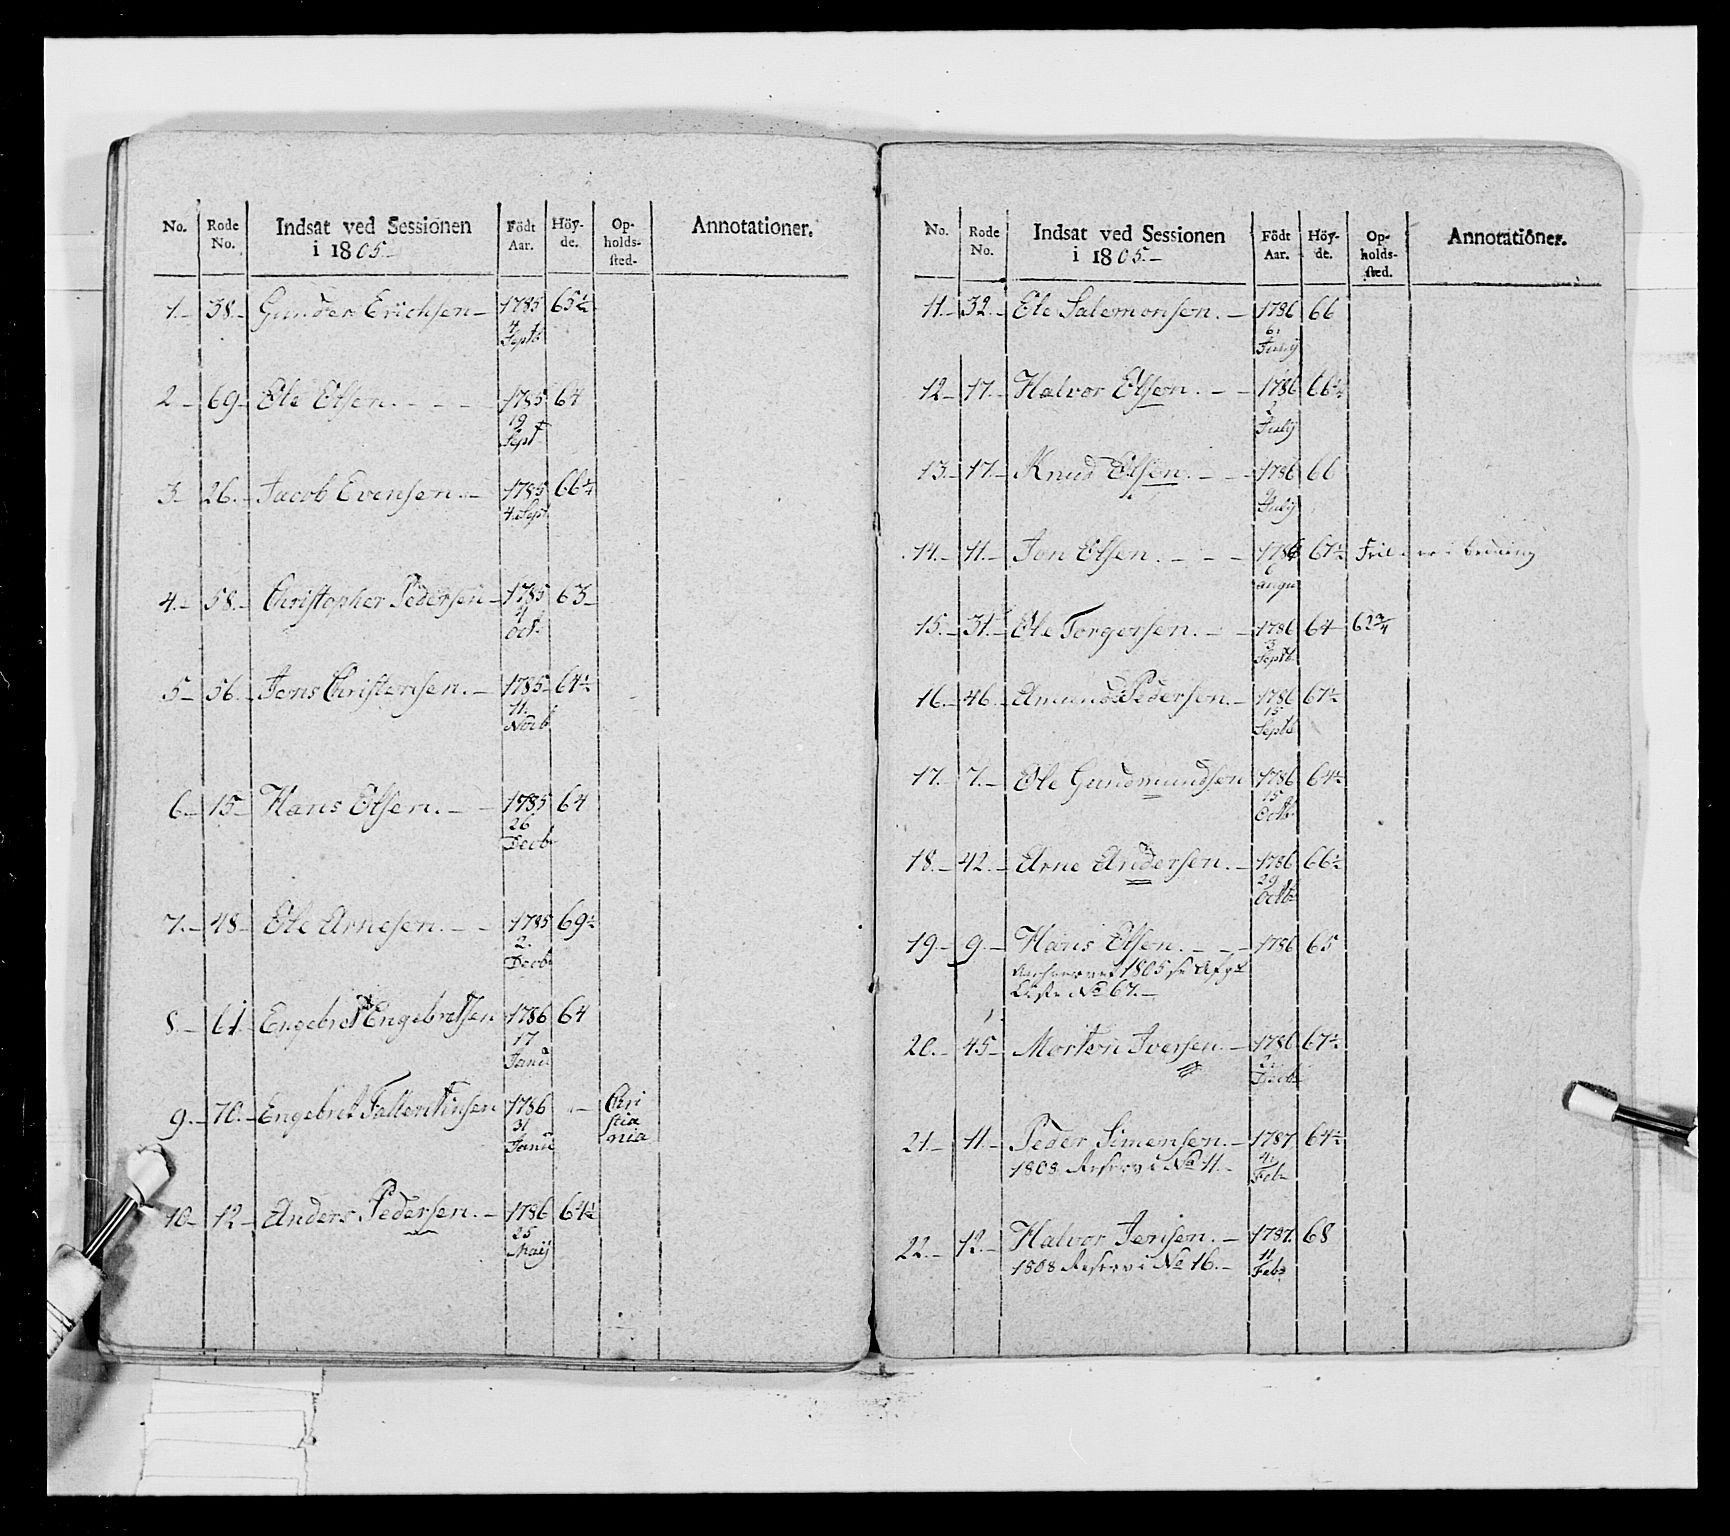 No. Rode No. Indsat ved Sessionen i 1805.— Födt Aar. Höy-de. Op-holds-sted. Annotationer.
1.— 38.— Gunder Erichsen— 1785 65½
4 Septb
2.— 69— Ole Olsen. — — — 1785 64
19 Sept
3.— 26.— Jacob Evensen.— 1785 66¼
4 Sept
4.— 58.— Christopher Pedersen— 1785 63—
Oct
5— 56.— Jens Christensen.— 1785 64½
11. Novb
6.— 15— Hans Olsen. — — 1785 64
26 Decb
7.— 48— Ole Arnesen. — — 1785 69½
2. Decb
8.— 61.— Engebret Engebretsen 1786 64
17 Janu
9.— 70.— Engebret Fallentinsen 1786 „—
31 Janu
Chri
stia
nia
10— 12— Anders Pedersen.— 1786 64½
25 Maij
No. Rode No. Indsat ved Sessionen i 1805.— Födt Aar. Höy-de. Op-holds-sted. Annotationer.
11.— 32.— Ole Salemonsen.— 1786 66
6.
12— 17.— Halvor Olsen. — — 1786 66½
July
13.— 17.— Knud Olsen. — — 1786 66
July
14.— 11.— Jon Olsen. — — — 1786 67½
6 augu
15.— 31.— Ole Torgersen. — — 1786 64 63¾
3 Septb
16.— 46.— Amund Pedersen.— 1786 67½
15 Septb
17.— 7.— Ole Gundmundsen 1786 64½
15 Octb
18.— 42.— Arne Andersen.— 1786 66½
29 Octb
19.— 9.— Hans Olsen. — — — 1786 65
1805 Afg
Liste No 67.—
20.— 45— Morten Iversen.— 1786 67½
21.— 11.— Peder Simensen.— 1787. 64½
4 Feb
1808 Reserv i No 11.—
22.— 12.— Halvor Jensen.— 1787. 68
11 Feb
1808 Reserv i No 16.—